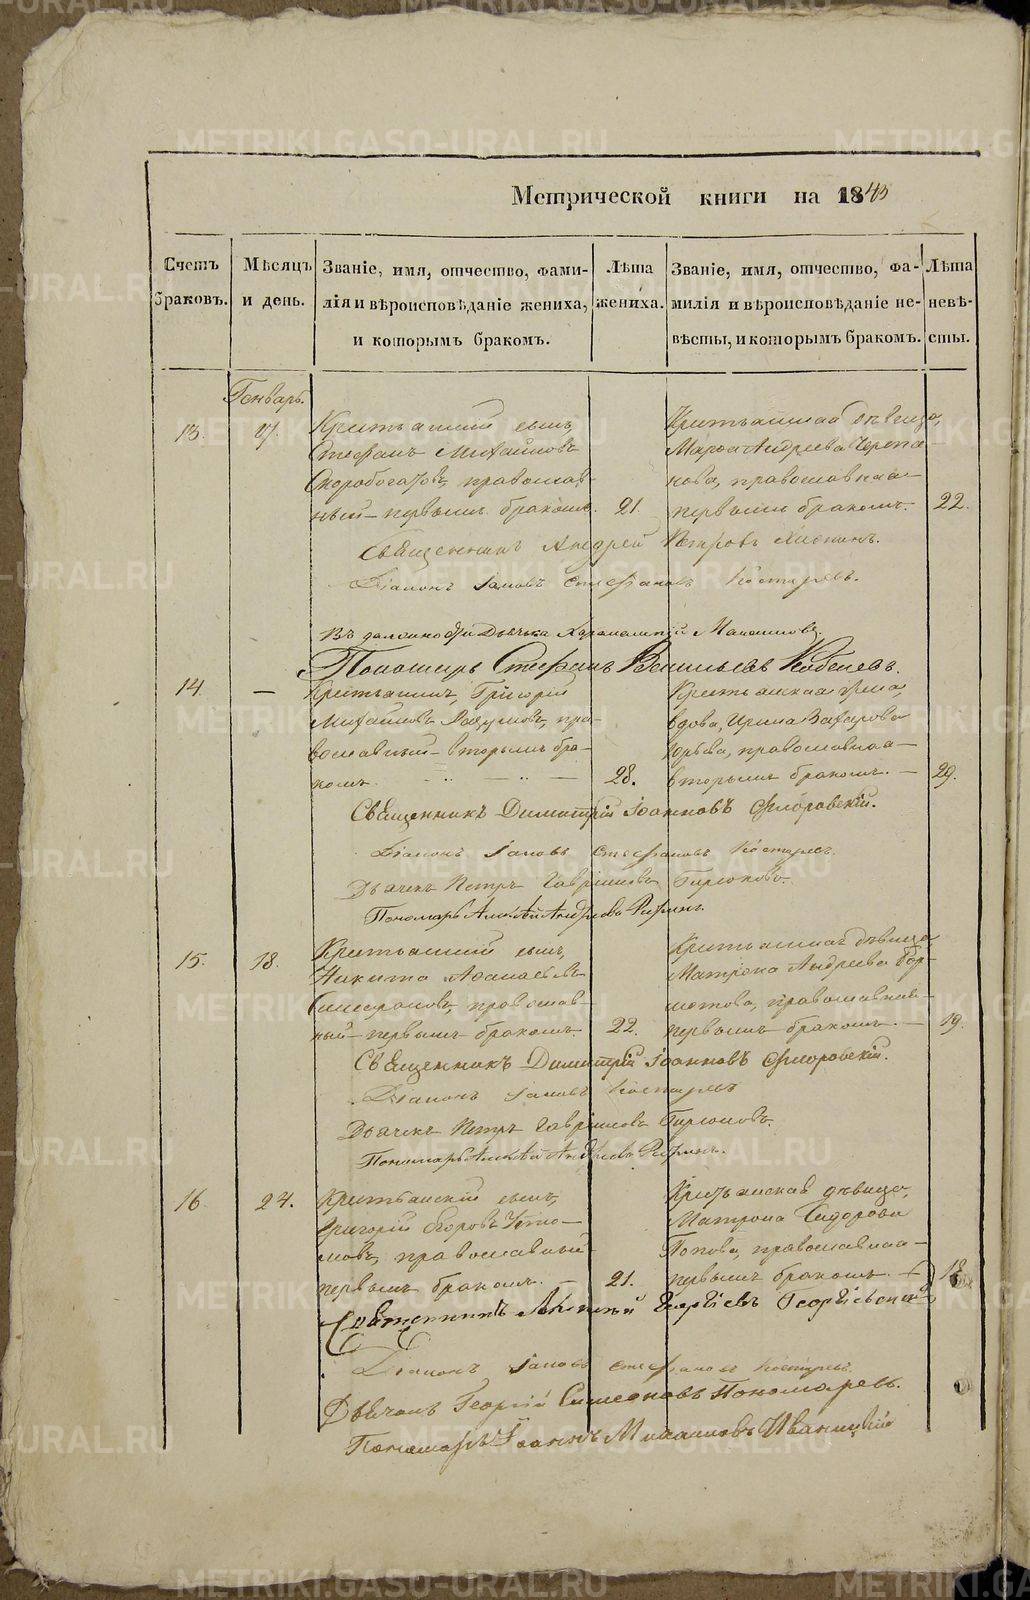 Метрической книги на 1840
Счетъ браковъ.
Мѣсяцъ и день.
Званіе, имя, отчество, фами-
лія и вѣроисповѣданіе жениха,
и которымъ бракомъ.
Лѣта жениха.
Званіе, имя, отчество, фа-
милія и вѣроисповѣданіе не-
вѣсты, и которымъ бракомъ.
Лѣта невѣ-
сты.
Генварь.
13. 17.
Крестьянскій сынъ,
Стефанъ Михайловъ
Скоробогатовъ, православ-
ный первымъ бракомъ. 21.
Крестьянская дѣвица,
Марѳа Андреева Черепа
нова, православная
первымъ бракомъ. 22.
Священникъ Андрей Петровъ
Діаконъ Іаковъ Стефановъ Костаревъ.
Въ должности Дьячька Харалампій
Пономарь Стефанъ Васильевъ
14. —
Крестьянинъ, Григорій
Михайловъ пра-
вославный вторымъ бра-
комъ. 28.
Крестьянская жена,
вдова, Ирина Захарова
Юрьева, православная
вторымъ бракомъ. 29.
Священникъ Димитрій Іоанновъ Флоровскій.
Діаконъ Іаковъ Стефановъ Костаревъ.
Дьячекъ Петръ Гавріиловъ
Пономарь Алексѣй Андреевъ
15. 18.
Крестьянскій сынъ,
Никита Аѳанасьевъ
православ-
ный первымъ бракомъ 22.
Крестьянская дѣвица
Матрона Андреева Бор-
православная
первымъ бракомъ. 19.
Священникъ Димитрій Іоанновъ Флоровскій.
Діаконъ Іаковъ Костаревъ
Дьячекъ Петръ Гавріиловъ
Пономарь Алексѣй Андреевъ
16. 24.
Крестьянскій сынъ,
Григорій Егоровъ
православный
первымъ бракомъ. 21.
Крестьянская дѣвица,
Матрона Сидорова
Попова, православная
первымъ бракомъ. 18
Священникъ Георгіевъ Георгіевскій
Діаконъ Іаковъ Стефановъ Костаревъ.
Дьячокъ Георгій Симеоновъ Пономаревъ.
Пономарь Іоаннъ Михайловъ Иваницкій
METRIKI.GASO-URAL.RU